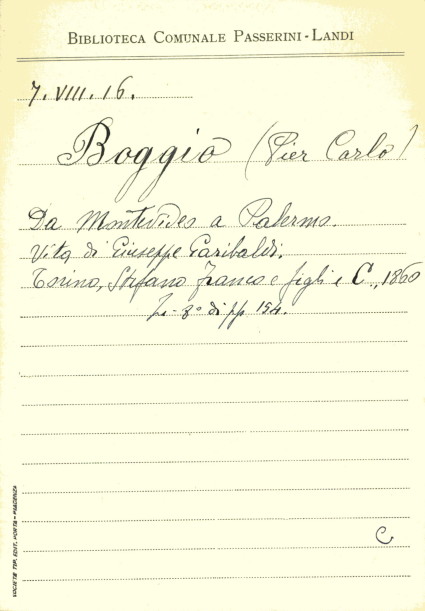 BIBLIOTECA COMUNALE PASSERINI-LANDI
7.VIII.16.
Boggio (Pier Carlo)
Da Montevideo a Palermo.
Vita di Giuseppe Garibaldi.
Torino, Stefano Franco e figli e C., 1860
In-8° di pp 154.
C
SOCIETÀ TIP. EDIT. PORTA - PIACENZA